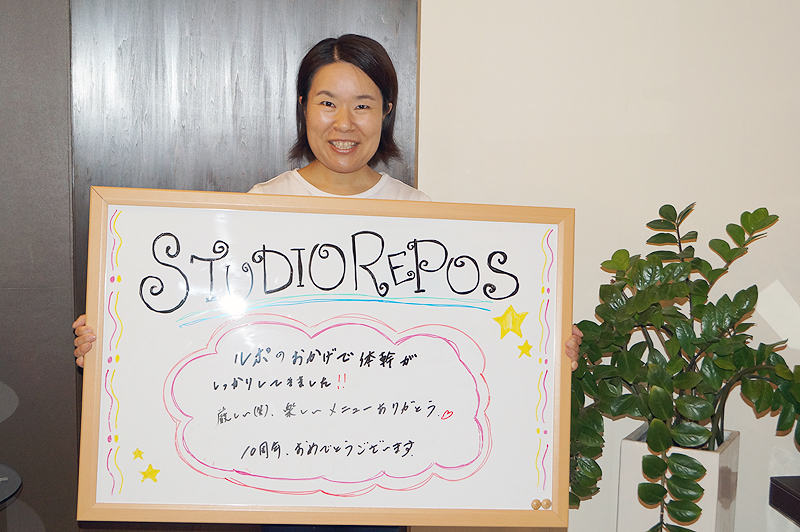 STUDIO REPOS
ルポのおかげで体幹が
しっかりしてきました!!
厳しい(笑)、楽しいメニューありがとう。♡
10周年、おめでとうございます。